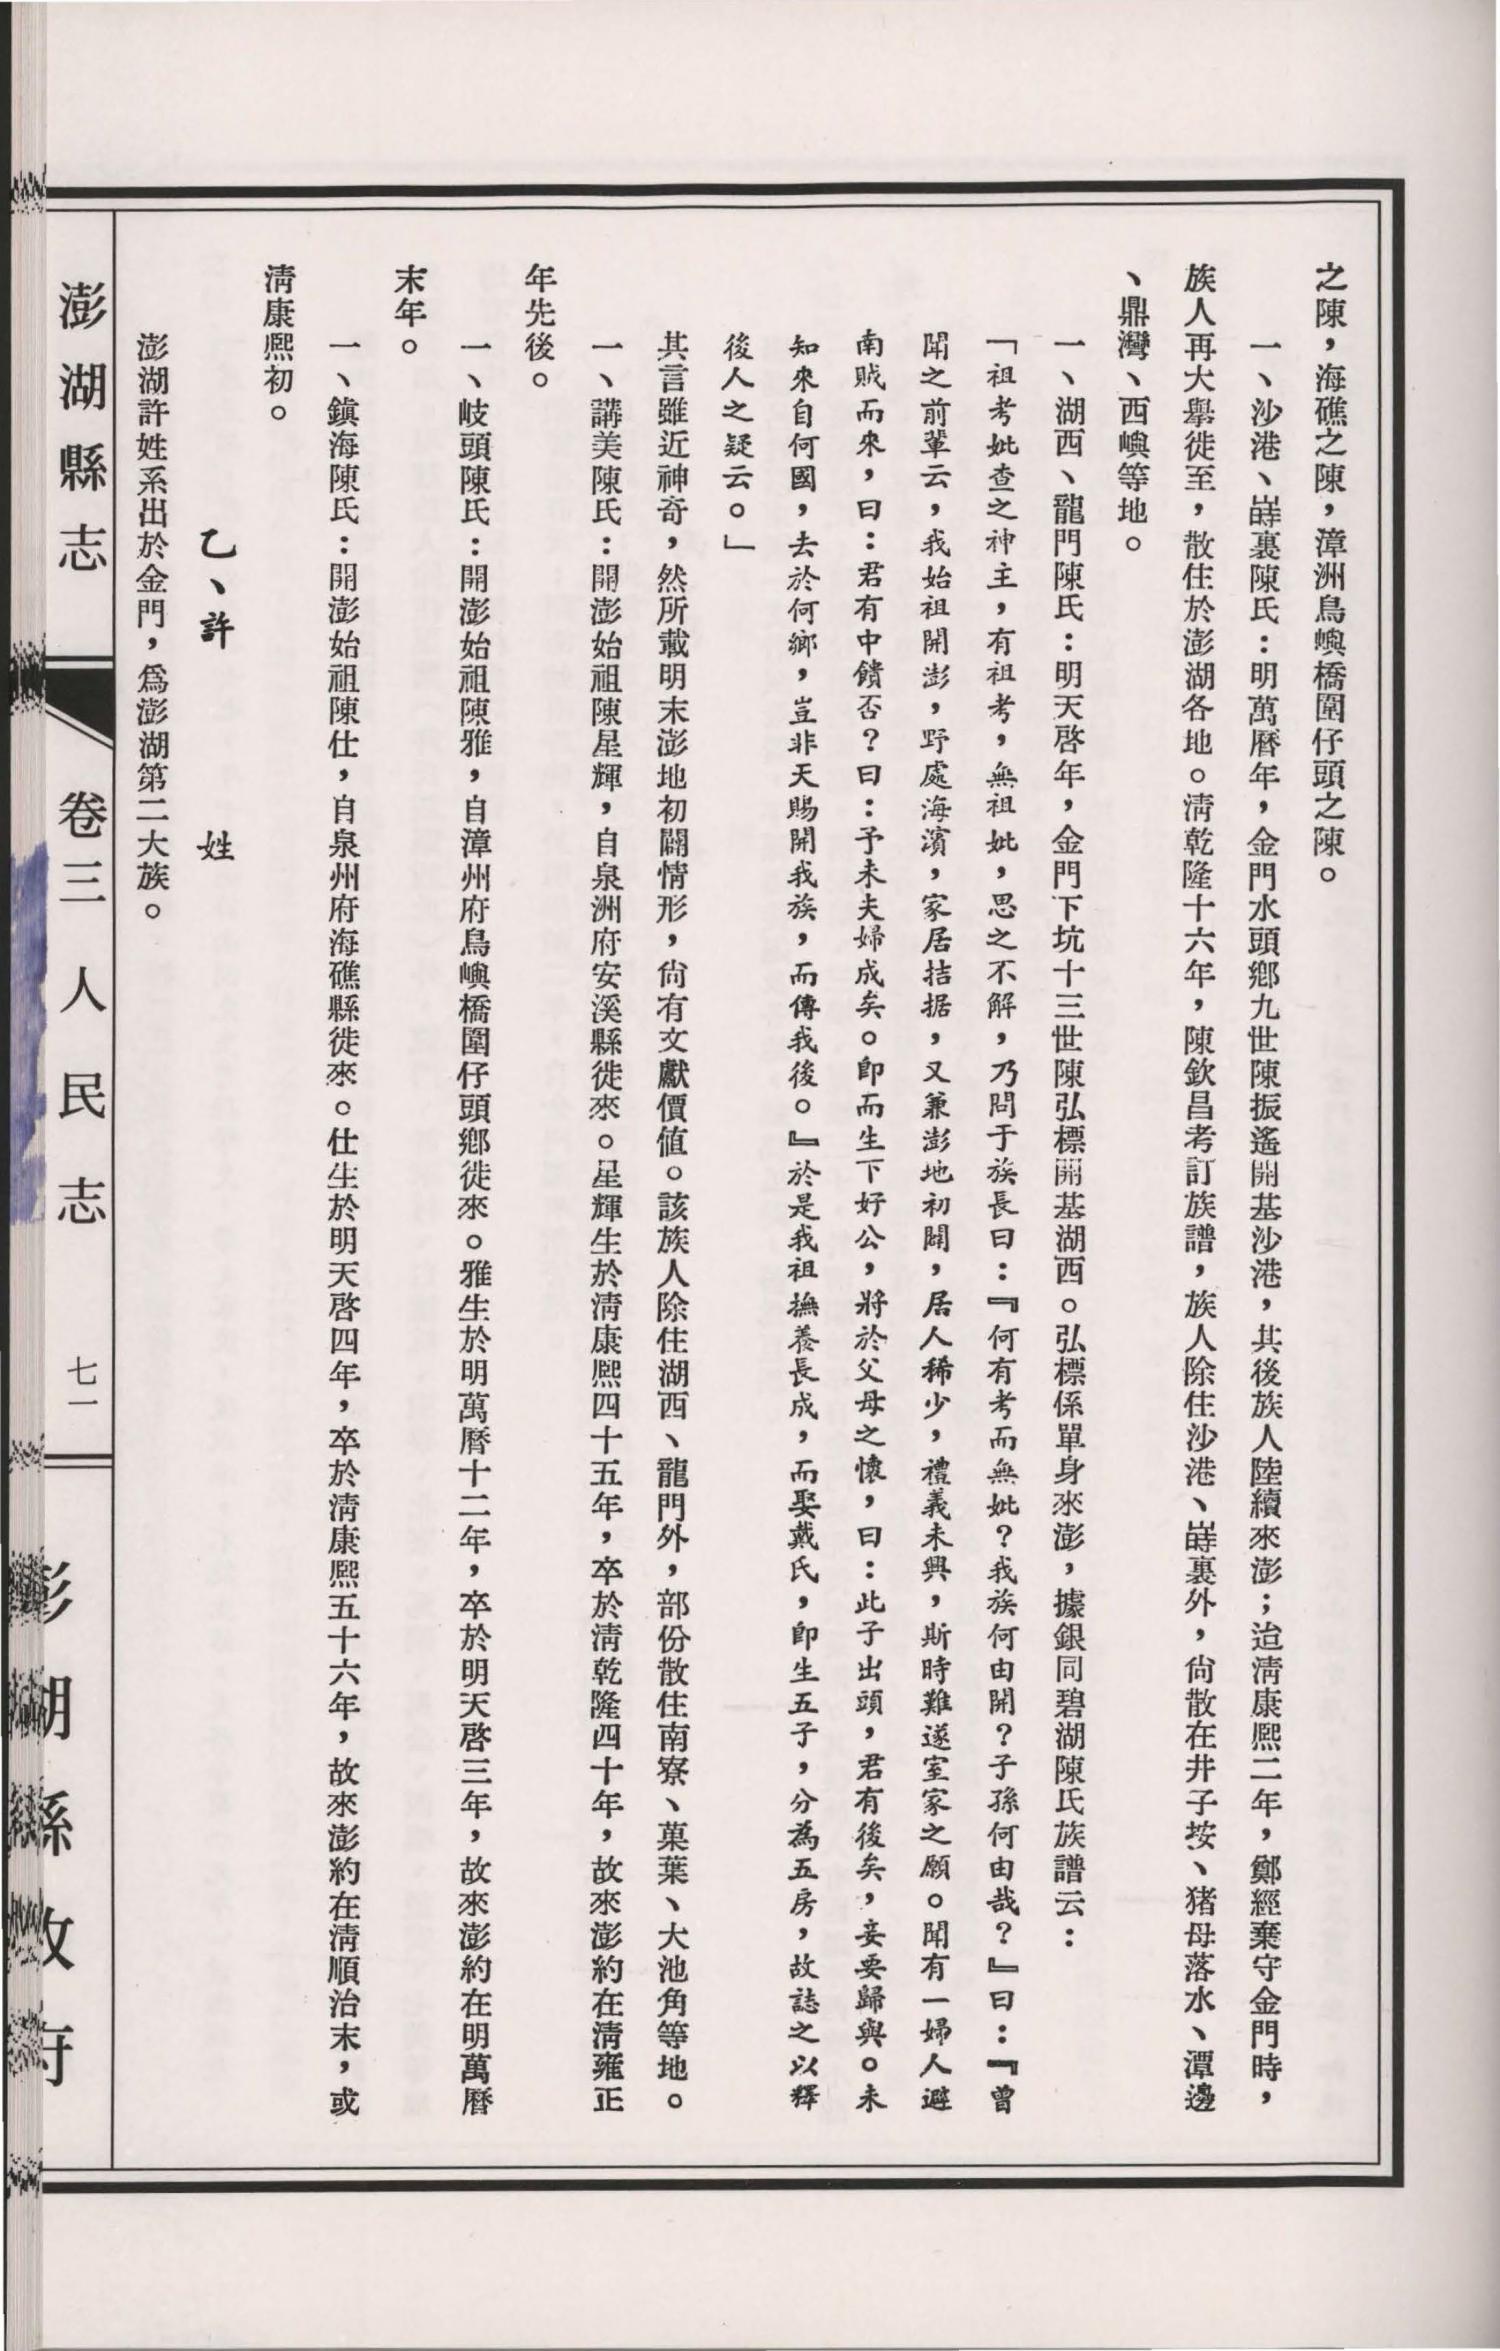 之陳，海礁之陳，漳洲鳥嶼橋圍仔頭之陳。
一、沙港、嵵裏陳氏：明萬曆年，金門水頭鄉九世陳振遙開基沙港，其後族人陸續來澎；迨淸康熙二年，鄭經棄守金門時，
族人再大舉徙至，散住於澎湖各地。淸乾隆十六年，陳欽昌考訂族譜，族人除住沙港、嵵裏外，尙散在井子垵、猪母落水、潭邊
、鼎灣、西嶼等地。
一、湖西、龍門陳氏：明天啓年，金門下坑十三世陳弘標開基湖西。弘標係單身來澎，據銀同碧湖陳氏族譜云：
「祖考妣查之神主，有祖考，無祖妣，思之不解，乃問于族長曰：『何有考而無妣？我族何由開？子孫何由哉？』曰：『曾
聞之前輩云，我始祖開澎，野處海濱，家居拮据，又兼澎地初闢，居人稀少，禮義未興，斯時難遂室家之願。聞有一婦人避
南賊而來，曰：君有中饋否？曰：予未夫婦成矣。卽而生下好公，將於父母之懷，曰：此子出頭，君有後矣，妾要歸與。未
知來自何國，去於何鄉，豈非天賜開我族，而傳我後。』於是我祖撫養長成，而娶戴氏，卽生五子，分為五房，故誌之以釋
後人之疑云。」
其言雖近神奇，然所載明末澎地初闢情形，尙有文獻價值。該族人除住湖西、龍門外，部份散住南寮、菓葉、大池角等地。
一、講美陳氏：開澎始祖陳星輝，自泉洲府安溪縣徙來。星輝生於淸康熙四十五年，卒於淸乾隆四十年，故來澎約在淸雍正
年先後。
一、岐頭陳氏：開澎始祖陳雅，自漳州府鳥嶼橋圍仔頭鄉徙來。雅生於明萬曆十二年，卒於明天啓三年，故來澎約在明萬曆
末年。
一、鎭海陳氏：開澎始祖陳仕，自泉州府海礁縣徙來。仕生於明天啓四年，卒於淸康熙五十六年，故來澎約在淸順治末，或
淸康熙初。
乙、許　姓
澎湖許姓系出於金門，爲澎湖第二大族。
澎湖縣志　卷三人民志　七一　澎湖縣政府